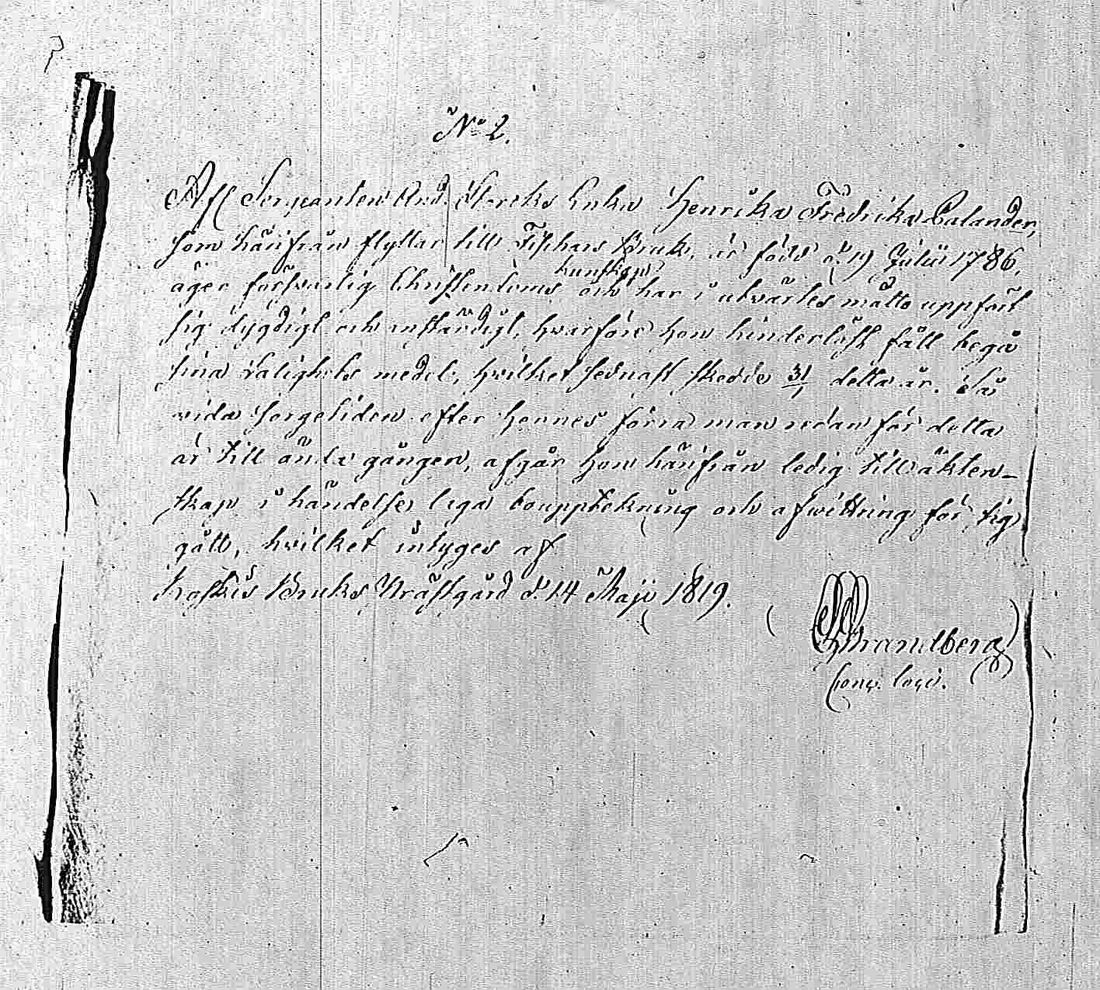 N:o 2.
Att Sergeanten And. Starcks Enka Henrika Fredrika Calander,
som härifrån flyttar till Fiskars Bruk, är född d. 19 Julii 1786,
kunskap
äger försvarlig Christendoms och har i utvärtes måtto uppfört
sig dygdigt och anständigt, hvarföre hon hinderlöst fått begå
sina Salighets medel, hvilket sednast skedde 31/1 detta år. Så
vida Sorgetiden efter hennes förra man redan för detta
är till ända gången, afgår hon härifrån ledig till äkten-
skap i händelse laga bouppteckning och afwittring för sig
gått, hvilket intyges af
Koskis Bruks Prästgård d. 14 Maji 1819.
Strandberg